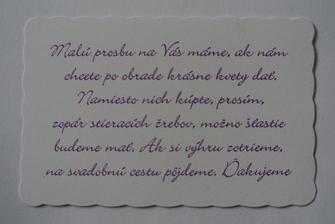 Malú prosbu na Vás máme, ak nám
chcete po obrade krásne kvety dať.
Namiesto nich kúpte, prosím,
zopár stieracích žrebov, možno šťastie
budeme mať. Ak si výhru zotrieme,
na svadobnú cestu pôjdeme. Ďakujeme